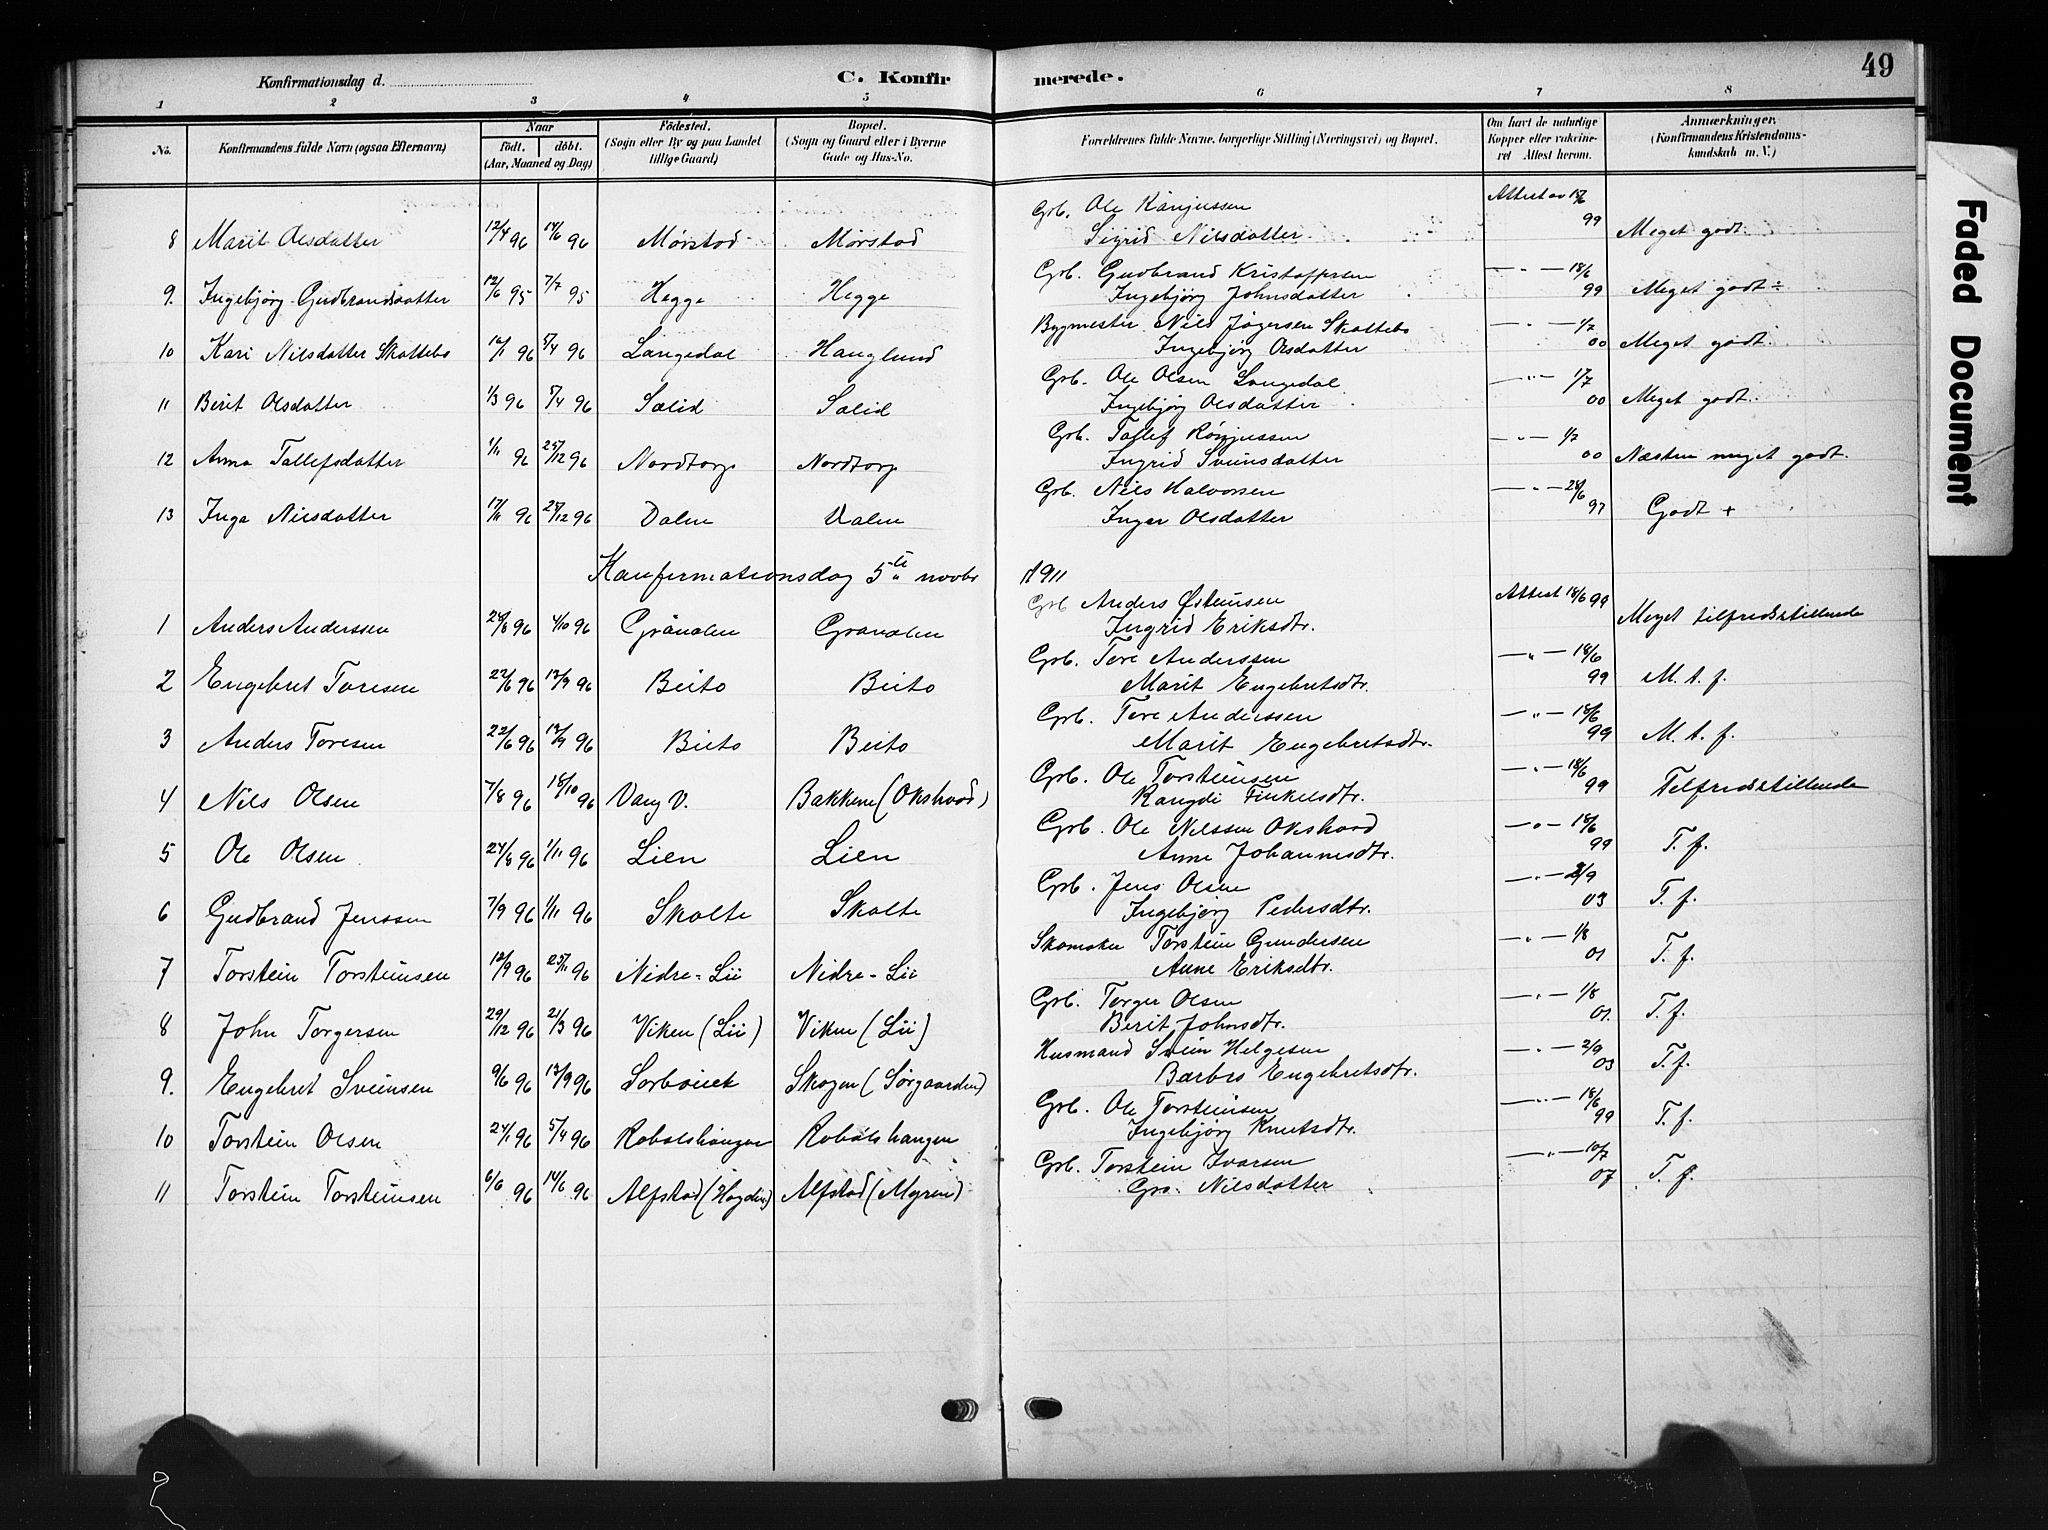 49
Konfirmationsdag d.
C. Konfirmerede.
1 2 3 4 5 6 7 8
No. Konfirmandens fulde Navn (ogsaa Efternavn) Naar født. døbt. (Aar, Maaned og Dag) Fødested. (Sogn eller By og paa Landet tillige Gaard) Bopæl. (Sogn og Gaard eller i Byerne Gade og Hus-No. Forældrenes fulde Navne, borgerlige Stilling (Næringsvei) og Bopæl. Om havt de naturlige Kopper eller vakcineret Attest herom. Anmærkninger. (Konfirmandens Kristendomskundskab m. V.)
8 Marit Olsdatter 12/4 96 14/6 96 Mørstad Mørstad Grb. Ole Rånjussen Attest av 18/6
Sigrid Nilsdatter 99 Meget godt
9. Ingebjørg Gudbrandsdatter 12/6 95 7/7 95 Hegge Hegge Grb. Gudbrand Kristoffersen — " — 18/6
Ingebjørg Johnsdatter 99 Meget godt ÷
10 Kari Nilsdatter Skattebo 16/1 96 5/4 96 Langedal Hauglund Bygmester Nils Jøgersen Skattebo — " — 1/7
Ingebjørg Olsdatter 00 Meget godt
11 Berit Olsdatter 1/3 96 5/4 96 Sælid Sælid Grb. Ole Olsen Langedal — " — 1/7
Ingebjørg Olsdatter 00 Meget godt
12 Anna Tallefsdatter 1/11 96 25/12 96 Nordtorp Nordtorp Grb. Tallef Rønjussen — " — 1/7
Ingrid Sveinsdatter 00 Næsten meget godt.
13 Inga Nilsdatter 17/11 96 25/12 96 Dalen Dalen Grb. Nils Halvorsen — " — 28/6
Inger Olsdatter 97 Godt +
Konfirmationsdag 5te novbr 1911
1 Anders Anderssen 28/8 96 4/10 96 Grånolen Granolen Grb Anders Østeinsen Attest 18/6 99
Ingrid Eriksdtr. Meget tilfredsstillende
2 Engebret Toresen 22/6 96 13/9 96 Beito Beito Grb. Tore Anderssen — " — 18/6
Marit Engebretsdtr. 99 M. t. f.
3 Anders Toresen 22/6 96 13/9 96 Beito Beito Grb. Tore Anderssen — " — 18/6
Marit Engebretsdtr. 99 M. t. f.
4 Nils Olsen 7/8 96 18/10 96 Vang V. Bakkene (Okshovd) Grb. Ole Torsteinsen — " — 18/6
Rangdi Finkelsdtr. 99 Tilfredsstillende
5 Ole Olsen 24/8 96 1/11 96 Lien Lien Grb. Ole Nilssen Okshovd — " — 18/6
Anne Johannesdtr. 99 T. f.
6 Gudbrand Jenssen 7/9 96 1/11 96 Skolte Skolte Grb. Jens Olsen — " — 2/9
Ingebjørg Pedersdtr. 03 T. f.
7 Torstein Torsteinsen 12/9 96 25/11 96 Nidre-Lii Nidre-Lii Skomaker Torstein Gundersen — " — 1/8
Anne Eriksdtr. 01 T. f.
8 John Torgersen 29/12 96 21/3 96 Viken (Lii) Viken (Lii) Grb. Torger Olsen — " — 1/8
Berit Johnsdtr. 01 T. f.
9. Engebret Sveinsen 9/6 96 13/9 96 Skogen (Sørgaarden) Husmand Svein Helgesen — " — 2/9
Barbro Engebretsdtr. 03 T. f.
10 Torstein Olsen 24/1 96 5/4 96 Robølshangen Robølshangen Grb. Ole Torsteinsen — " — 18/6
Ingebjørg Knutsdtr. 99 T. f.
11 Torstein Torsteinsen 6/6 96 14/6 96 Alfstad (Høyden) Alfstad (Myren) Grb. Torstein Ivarsen — " — 10/7
Gro Nilsdatter 07 T. f.
Faded Document